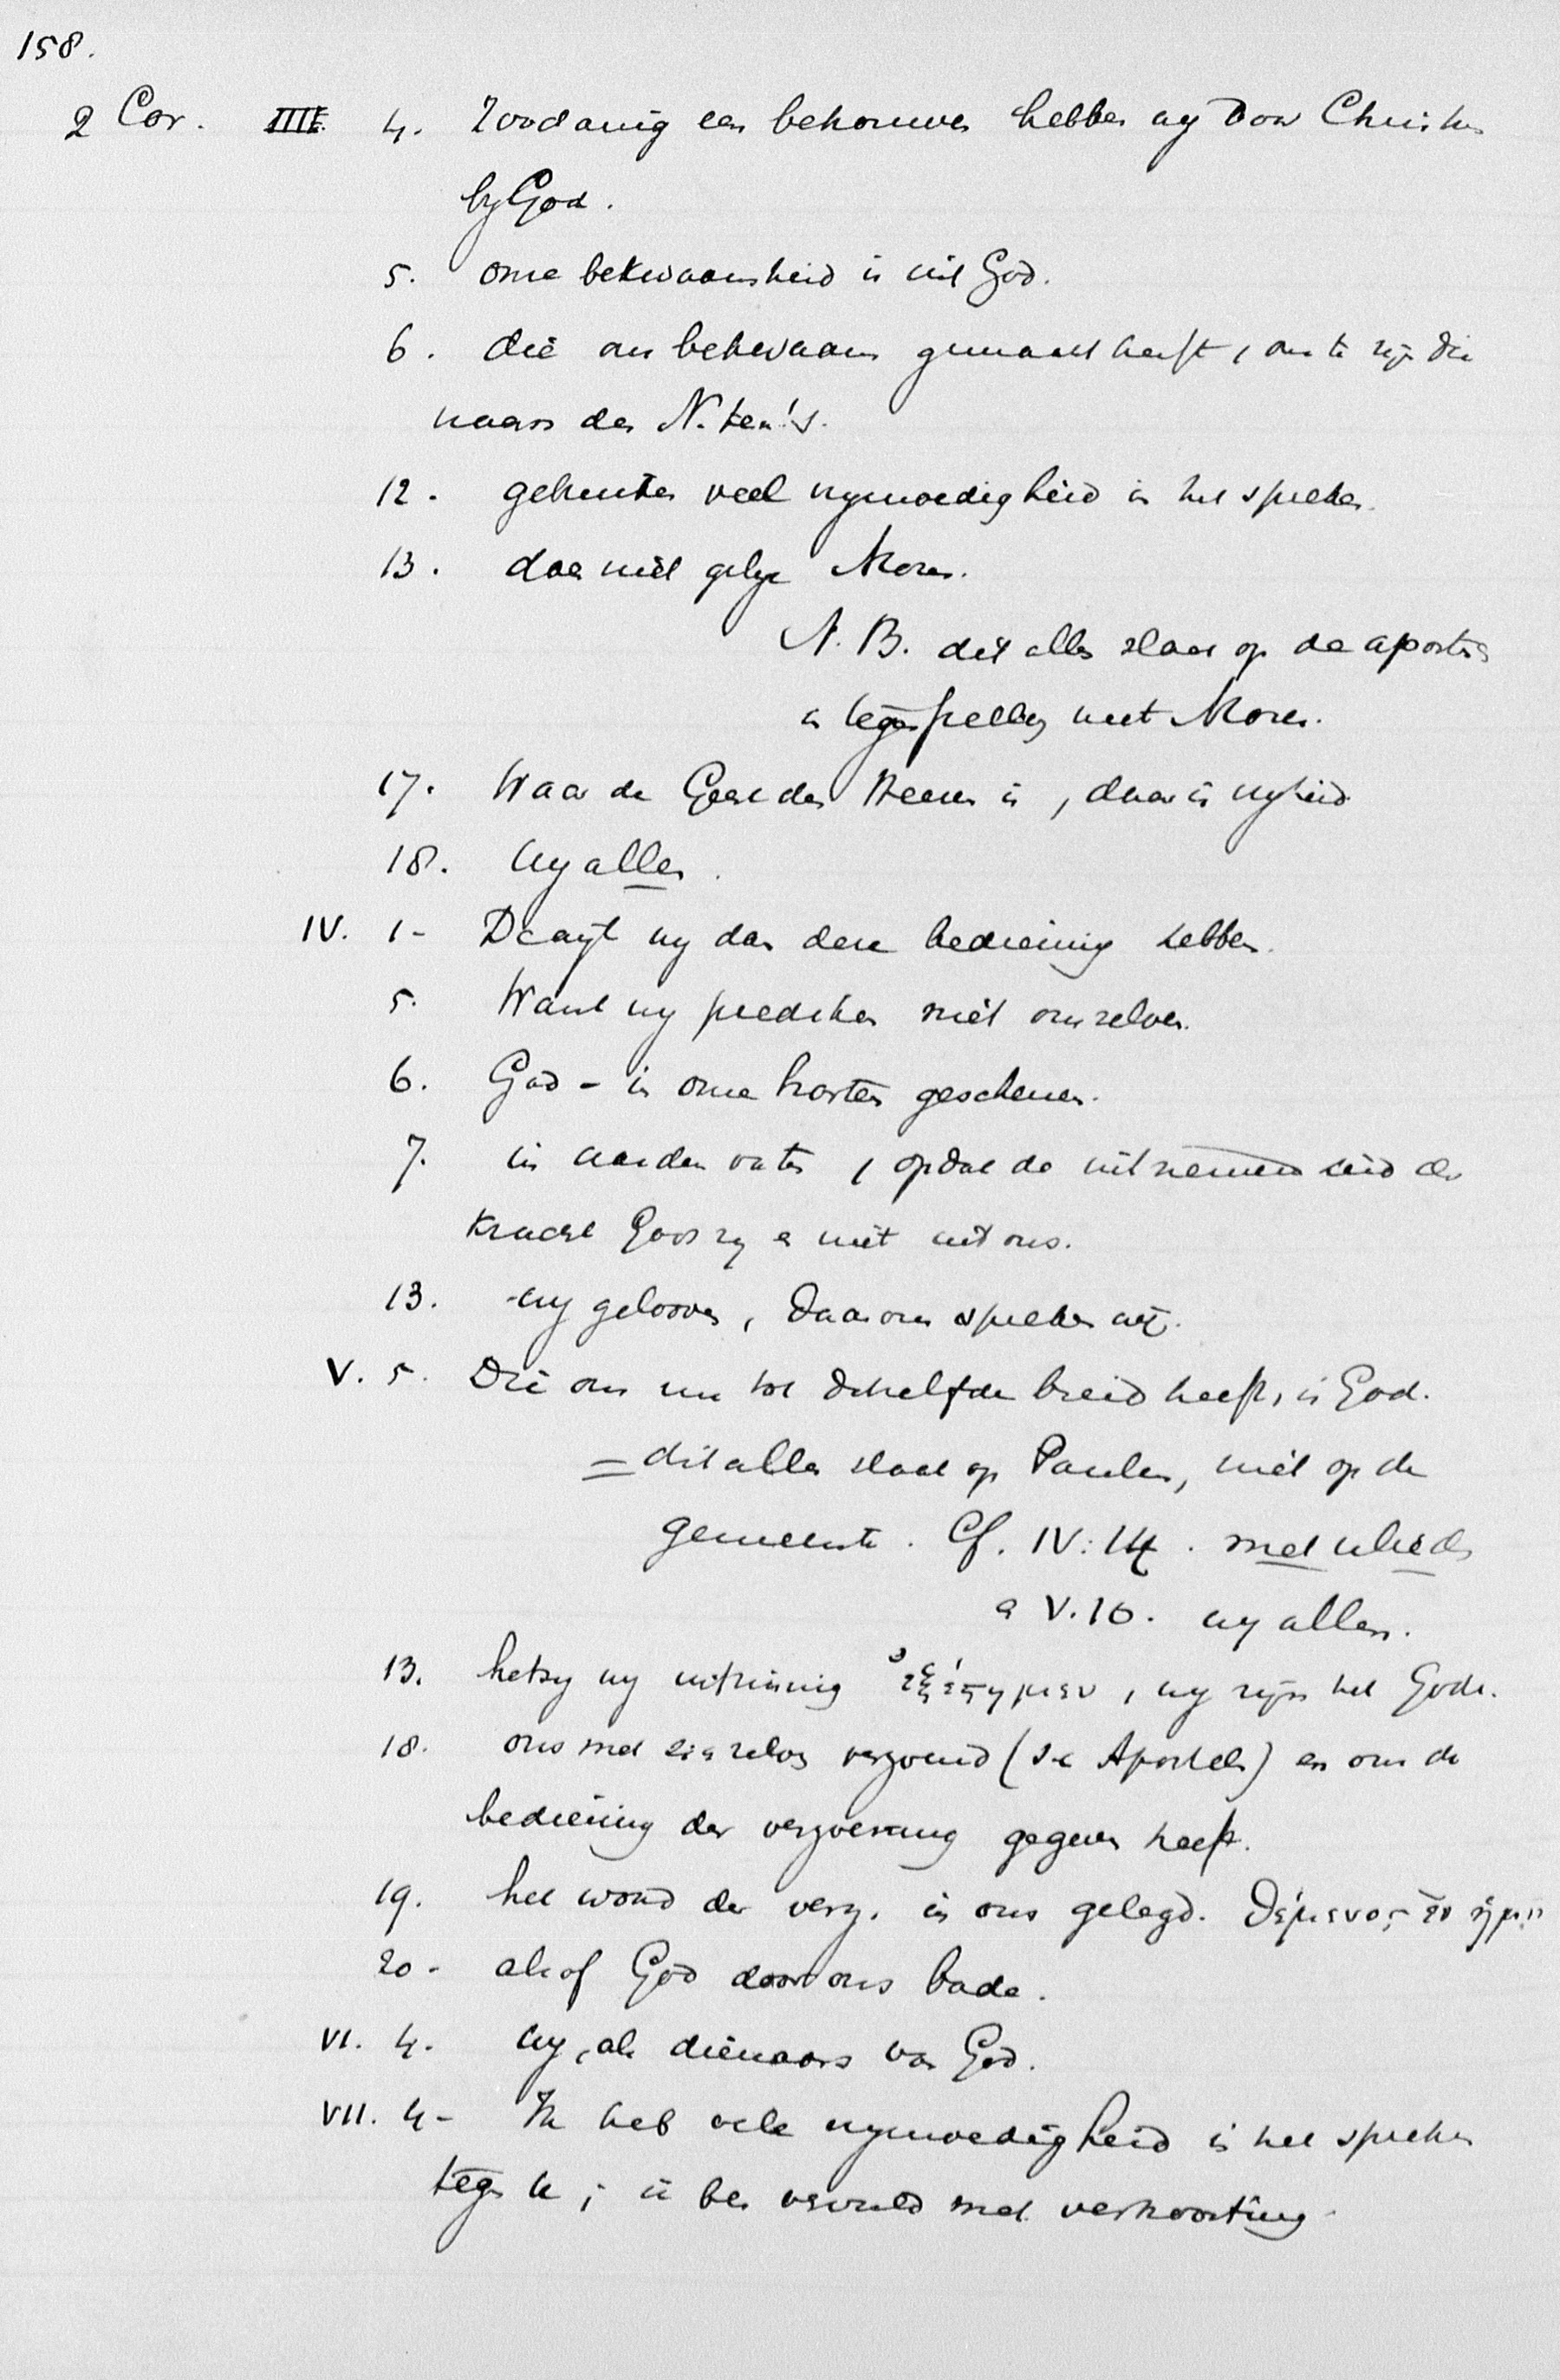 158.
2 Cor. III. 4. Zoodanig een vertrouwen hebben wy door Christus
by God.
5. onze bekwaamheid is uit God.
6. die ons bekwaam gemaakt heeft, om te zijn die
naars des N. Test's.
12. gebruiken veel vrymoedigheid in het spreken.
13. doen niet gelyk Mozes.
N.B. dit alles slaat op de apostels
in tegenstelling met Mozes.
17. Waar de Geest des Heeren is, daar is vryheid
18. Wy allen.
IV. 1- Dewijl wy dan deze bediening hebben.
5. Want wy prediken niet ons zelven.
6. God - in onze harten geschenen.
7. in aarden vaten, opdat de uitnemendheid der
kracht Gods zy en niet uit ons.
13. wy gelooven, daarom spreken wij.
V. 5. Die ons nu tot ditzelfde bereid heeft, is God.
= dit alles slaat op Paulus, niet op de
gemeente. Cf. IV:14. met ulieden
en V.10. wy allen.
13. hetzy wy uitzinnig ἐξέστημεν, wy zyn het Gode.
18. ons met zich zelven verzoend (de Apostels) en ons de
bediening der verzoening gegeven heeft.
19. het woord der verz. in ons gelegd. θέμενος ἐν ἡμῖν
20- alsof God door ons bade.
VI. 4. Wy, als dienaars van God.
VII. 4- Ik heb vele vrymoedigheid in het spreken
tegen u; ik ben vervuld met vertroosting.